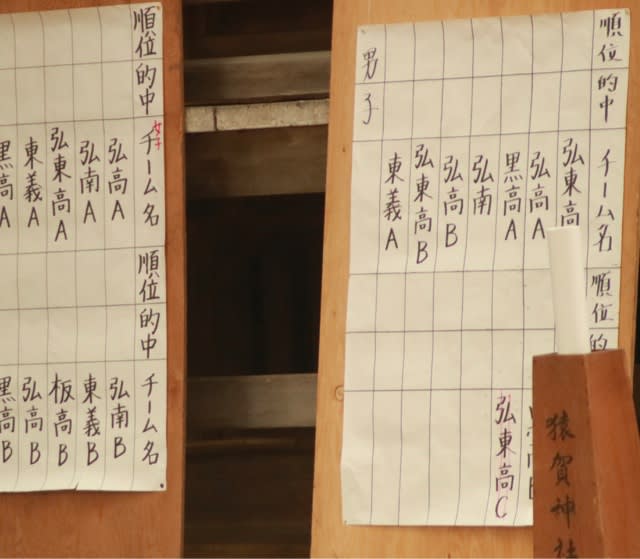 順位
的中
チーム名
弘東高
弘高A
黒高A
弘南
弘高B
弘東高B
東義A
男子
順位
的
弘東高C
猿賀神社
順位
的中
チーム名
女子
弘高A
弘南A
弘東高A
東義A
黒高A
順位
的中
チーム名
弘南B
東義B
板高B
弘高B
黒高B